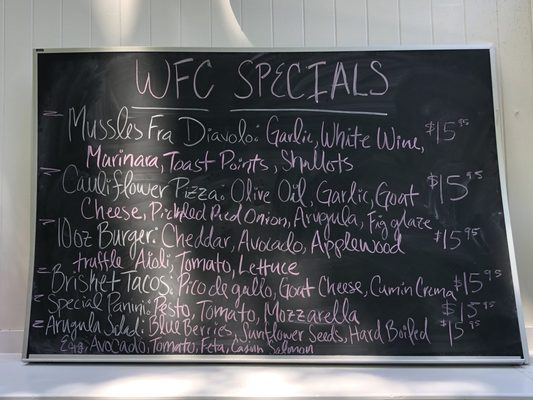 WFC SPECIALS
Mussles Fra Diavolo: Garlic, White Wine, $15.95
Marinara, Toast Points, Shallots
Cauliflower Pizza: Olive Oil, Garlic, Goat $15.95
Cheese, Pickled Red Onion, Arugula, Fig glaze
10oz Burger: Cheddar, Avocado, Applewood $15.95
truffle Aioli, Tomato, Lettuce
Brisket Tacos: Pico de gallo, Goat Cheese, Cumin Crema $15.95
Special Panini: Pesto, Tomato, Mozzarella $15.95
Arugula Salad: Blue Berries, Sunflower Seeds, Hard Boiled $15.95
Egg, Avocado, Tomato, Feta, Cajun Salmon